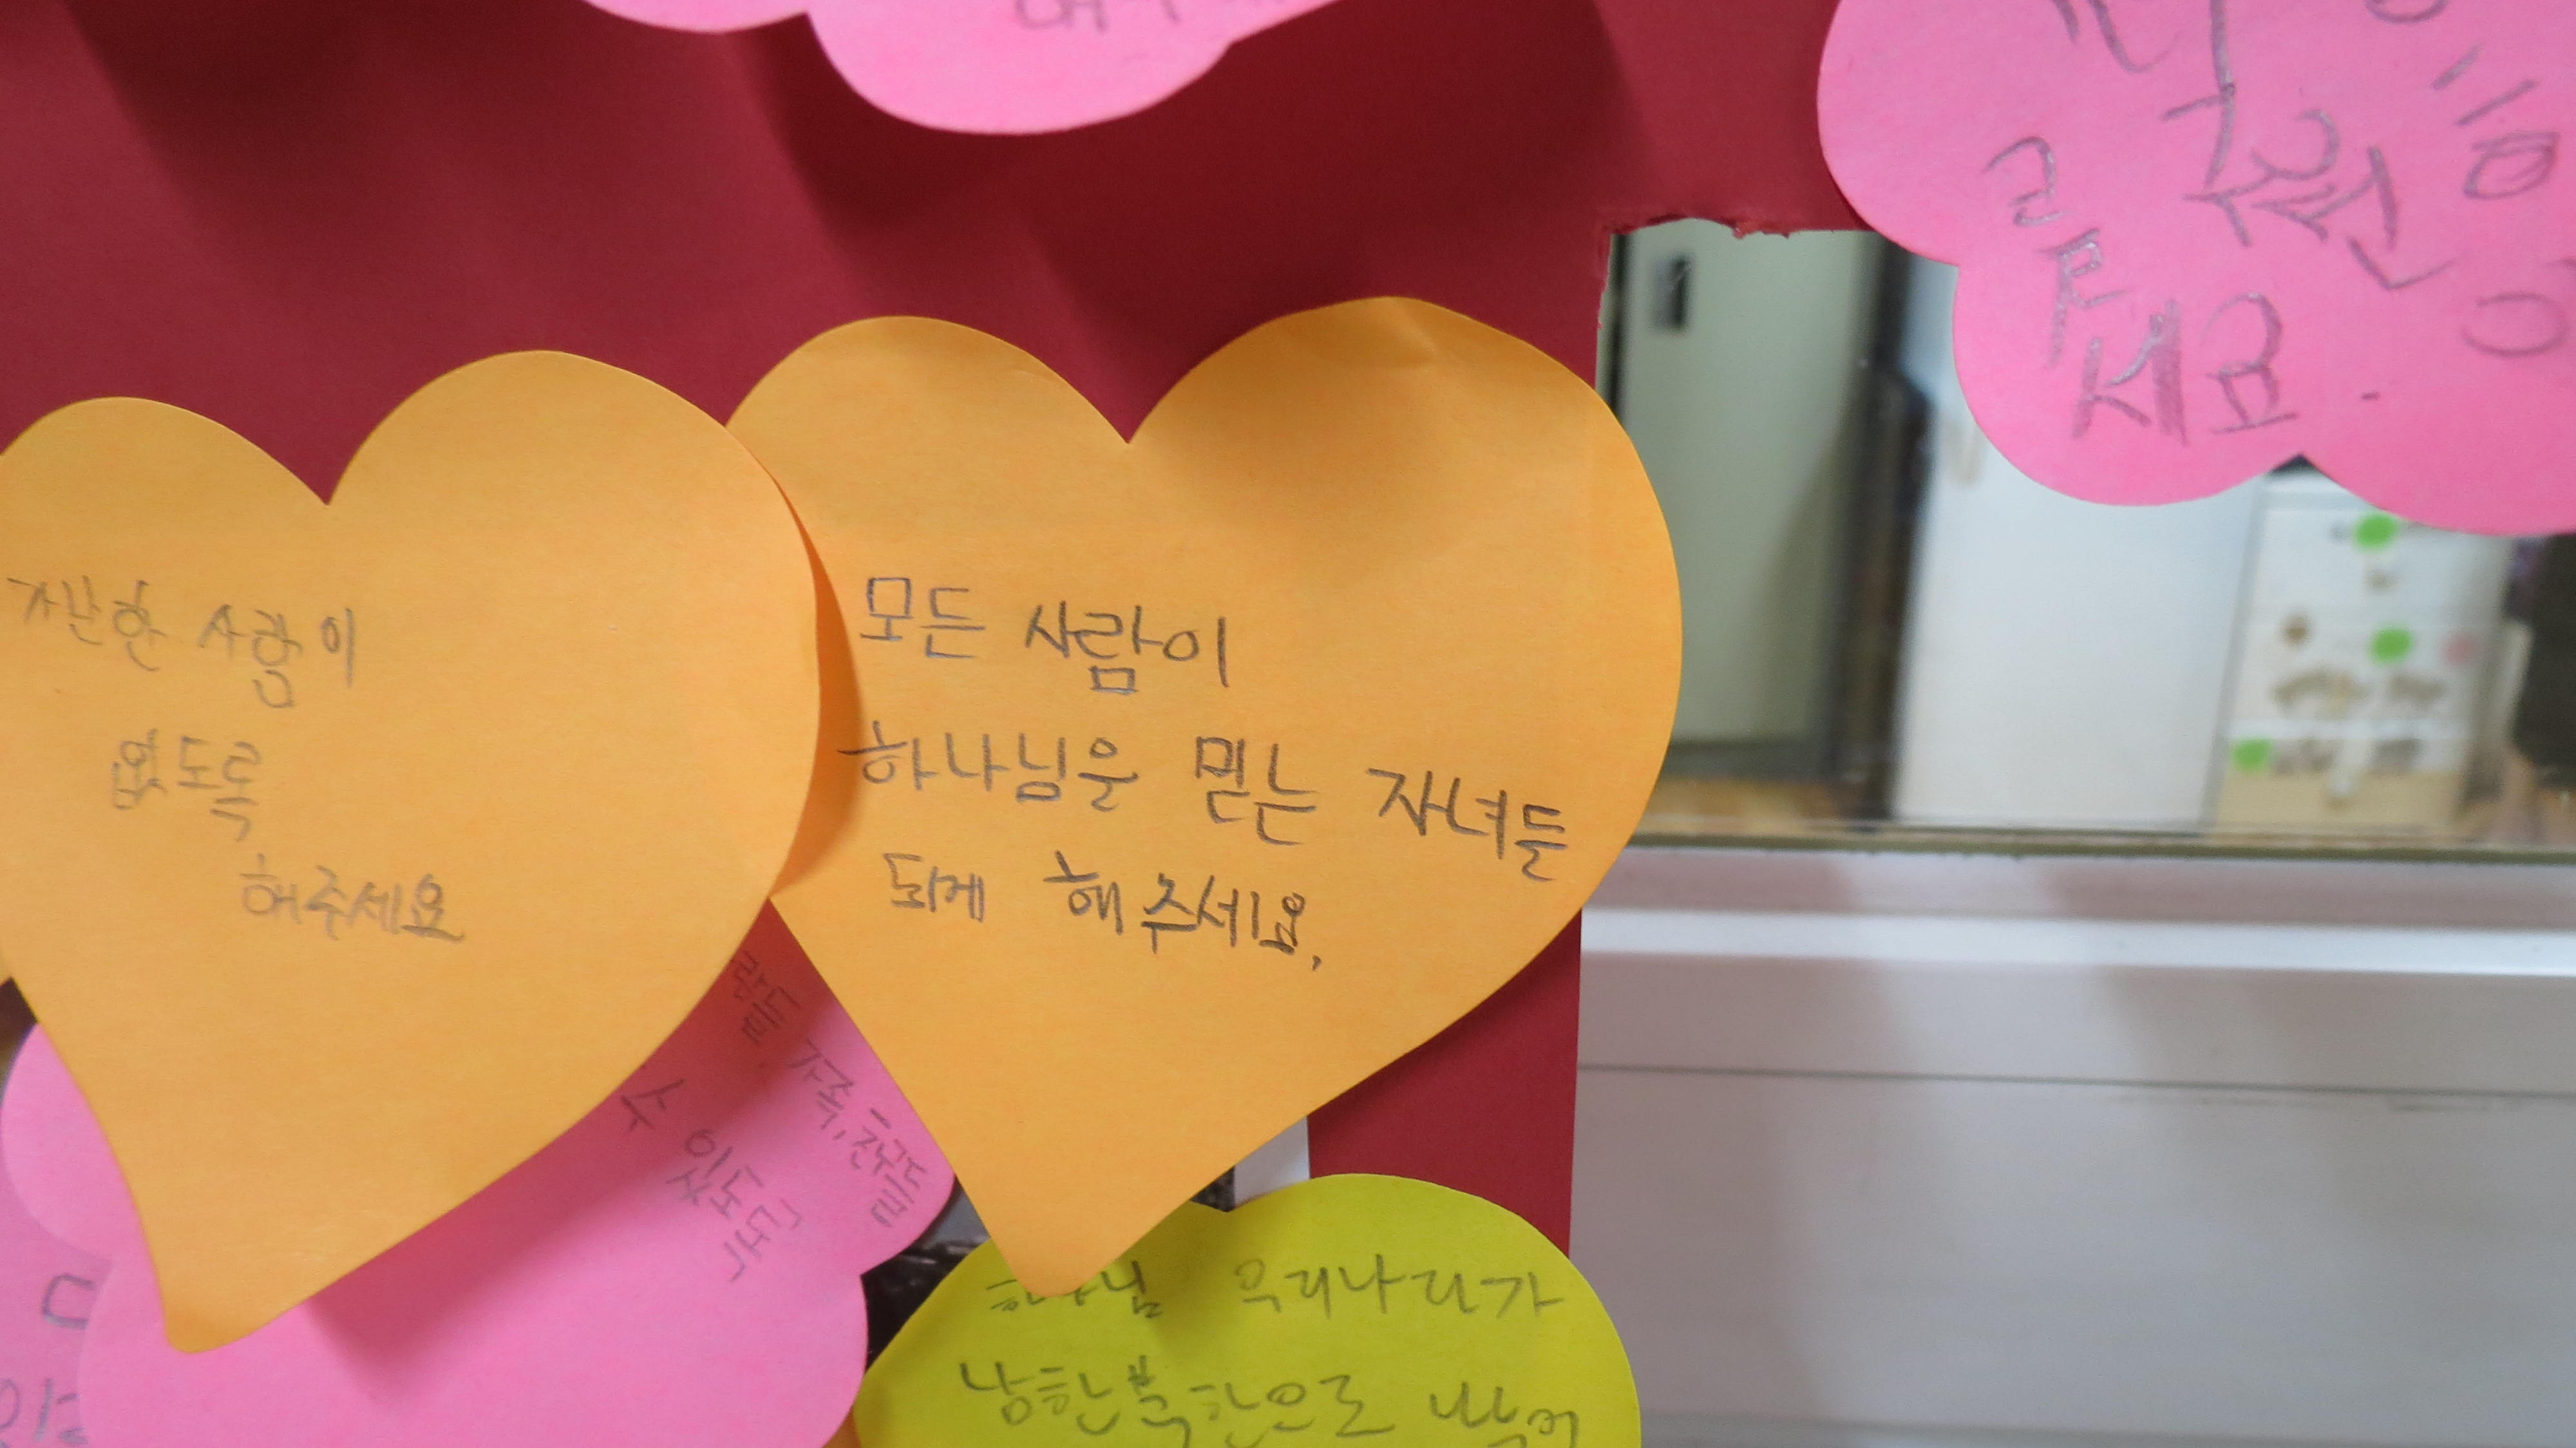 가난한 사람이
없도록
해주세요
모든 사람이
하나님을 믿는 자녀들
되게 해주세요,
세요.
람들, 가족, 친구들
수 있도록
우리나라가
남한북한으로